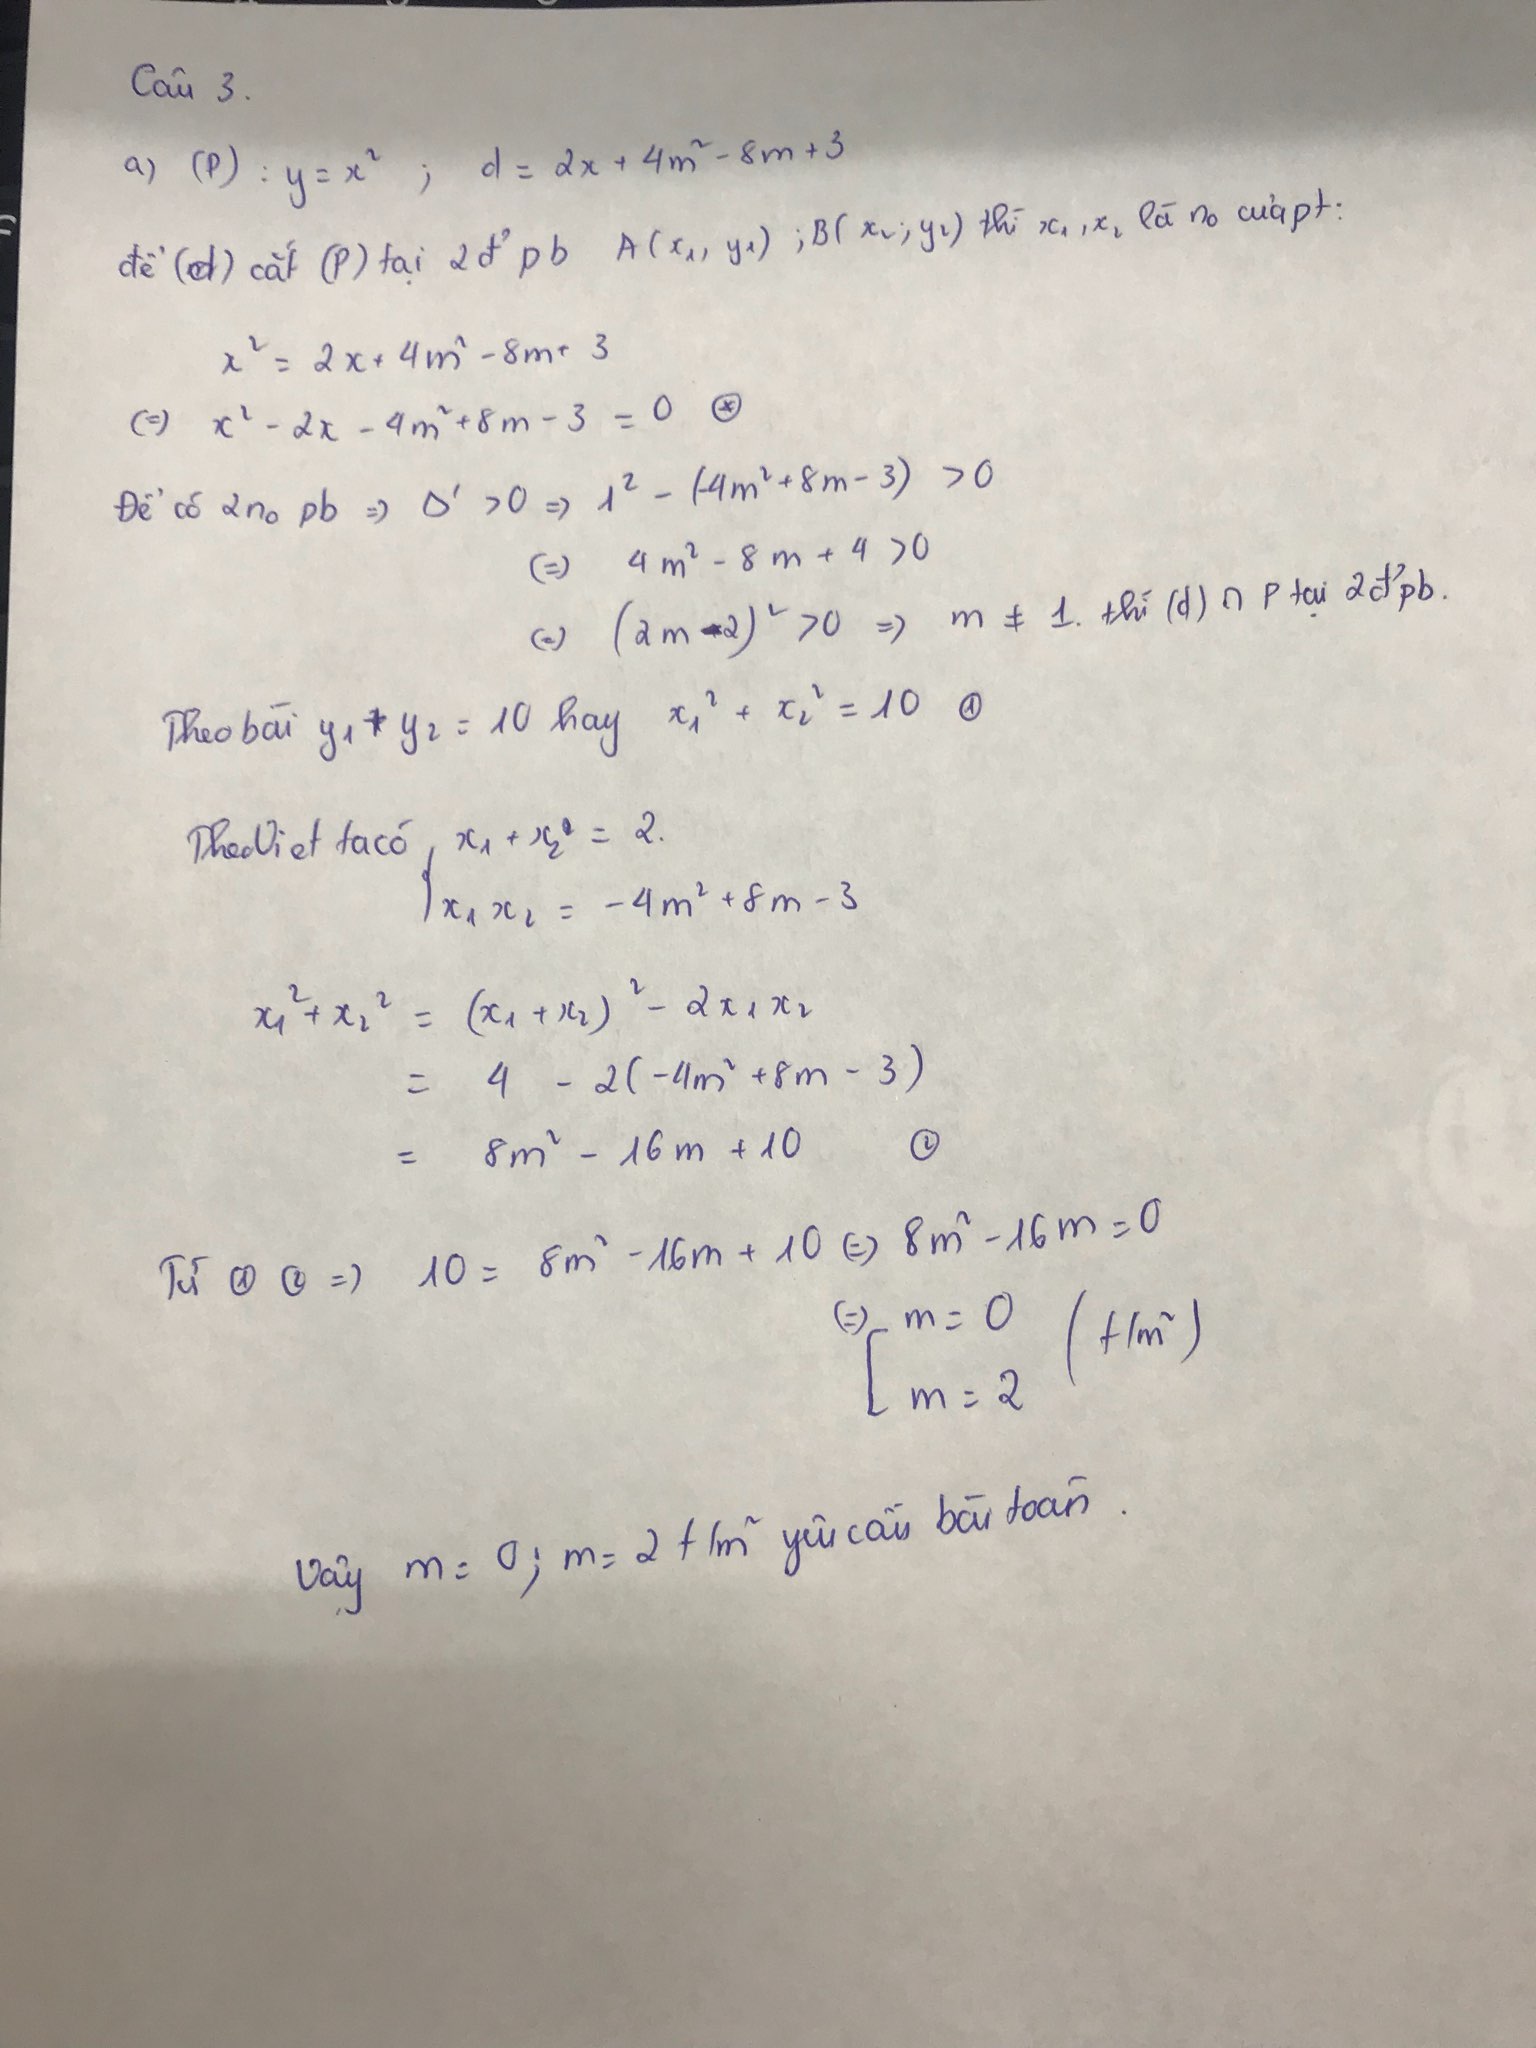 Câu 3.
a) (P) : y = x² ; d = 2x + 4m² - 8m + 3
để (d) cắt (P) tại 2 đ' pb A(x₁, y₁) ; B(x₂; y₂) thì x₁, x₂ là n₀ của pt:
x² = 2x + 4m² - 8m + 3
(=) x² - 2x - 4m² + 8m - 3 = 0 (*)
Để có 2 n₀ pb => Δ' > 0 => 1² - (-4m² + 8m - 3) > 0
(=) 4m² - 8m + 4 > 0
(=) (2m - 2)² > 0 => m ≠ 1. thì (d) ∩ P tại 2 đ' pb.
Theo bài y₁ + y₂ = 10 hay x₁² + x₂² = 10 ①
Theo Viet ta có { x₁ + x₂ = 2.
x₁ x₂ = -4m² + 8m - 3
x₁² + x₂² = (x₁ + x₂)² - 2x₁x₂
= 4 - 2(-4m² + 8m - 3)
= 8m² - 16m + 10 ②
Từ ① ② => 10 = 8m² - 16m + 10 (=) 8m² - 16m = 0
(=) [ m = 0 (t/m²)
m = 2
Vậy m = 0; m = 2 t/m² yêu cầu bài toán.